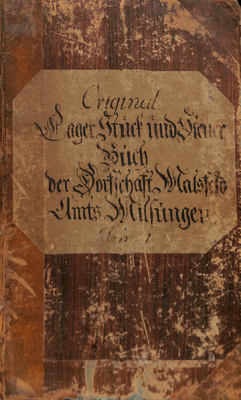 Original
Lager, Stück und Steuer
Buch
der Dorfschaft Malsfeld
Amts Milsungen